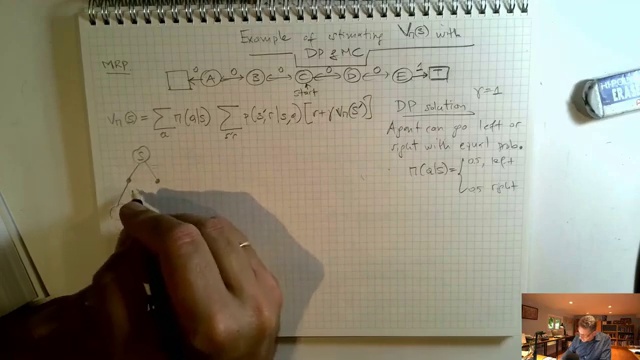 Example of estimating Vπ(s) with
DP & MC
MRP
0 A 0 B 0 C 0 D 0 E 1 T
Start
Vπ(s) = ∑a π(a|s) ∑s'r p(s',r|s,a) [r+γVπ(s')]
DP solution γ=1
Agent can go left or
right with equal prob.
π(a|s) = { 0.5, left
0.5 right
S
ERAS